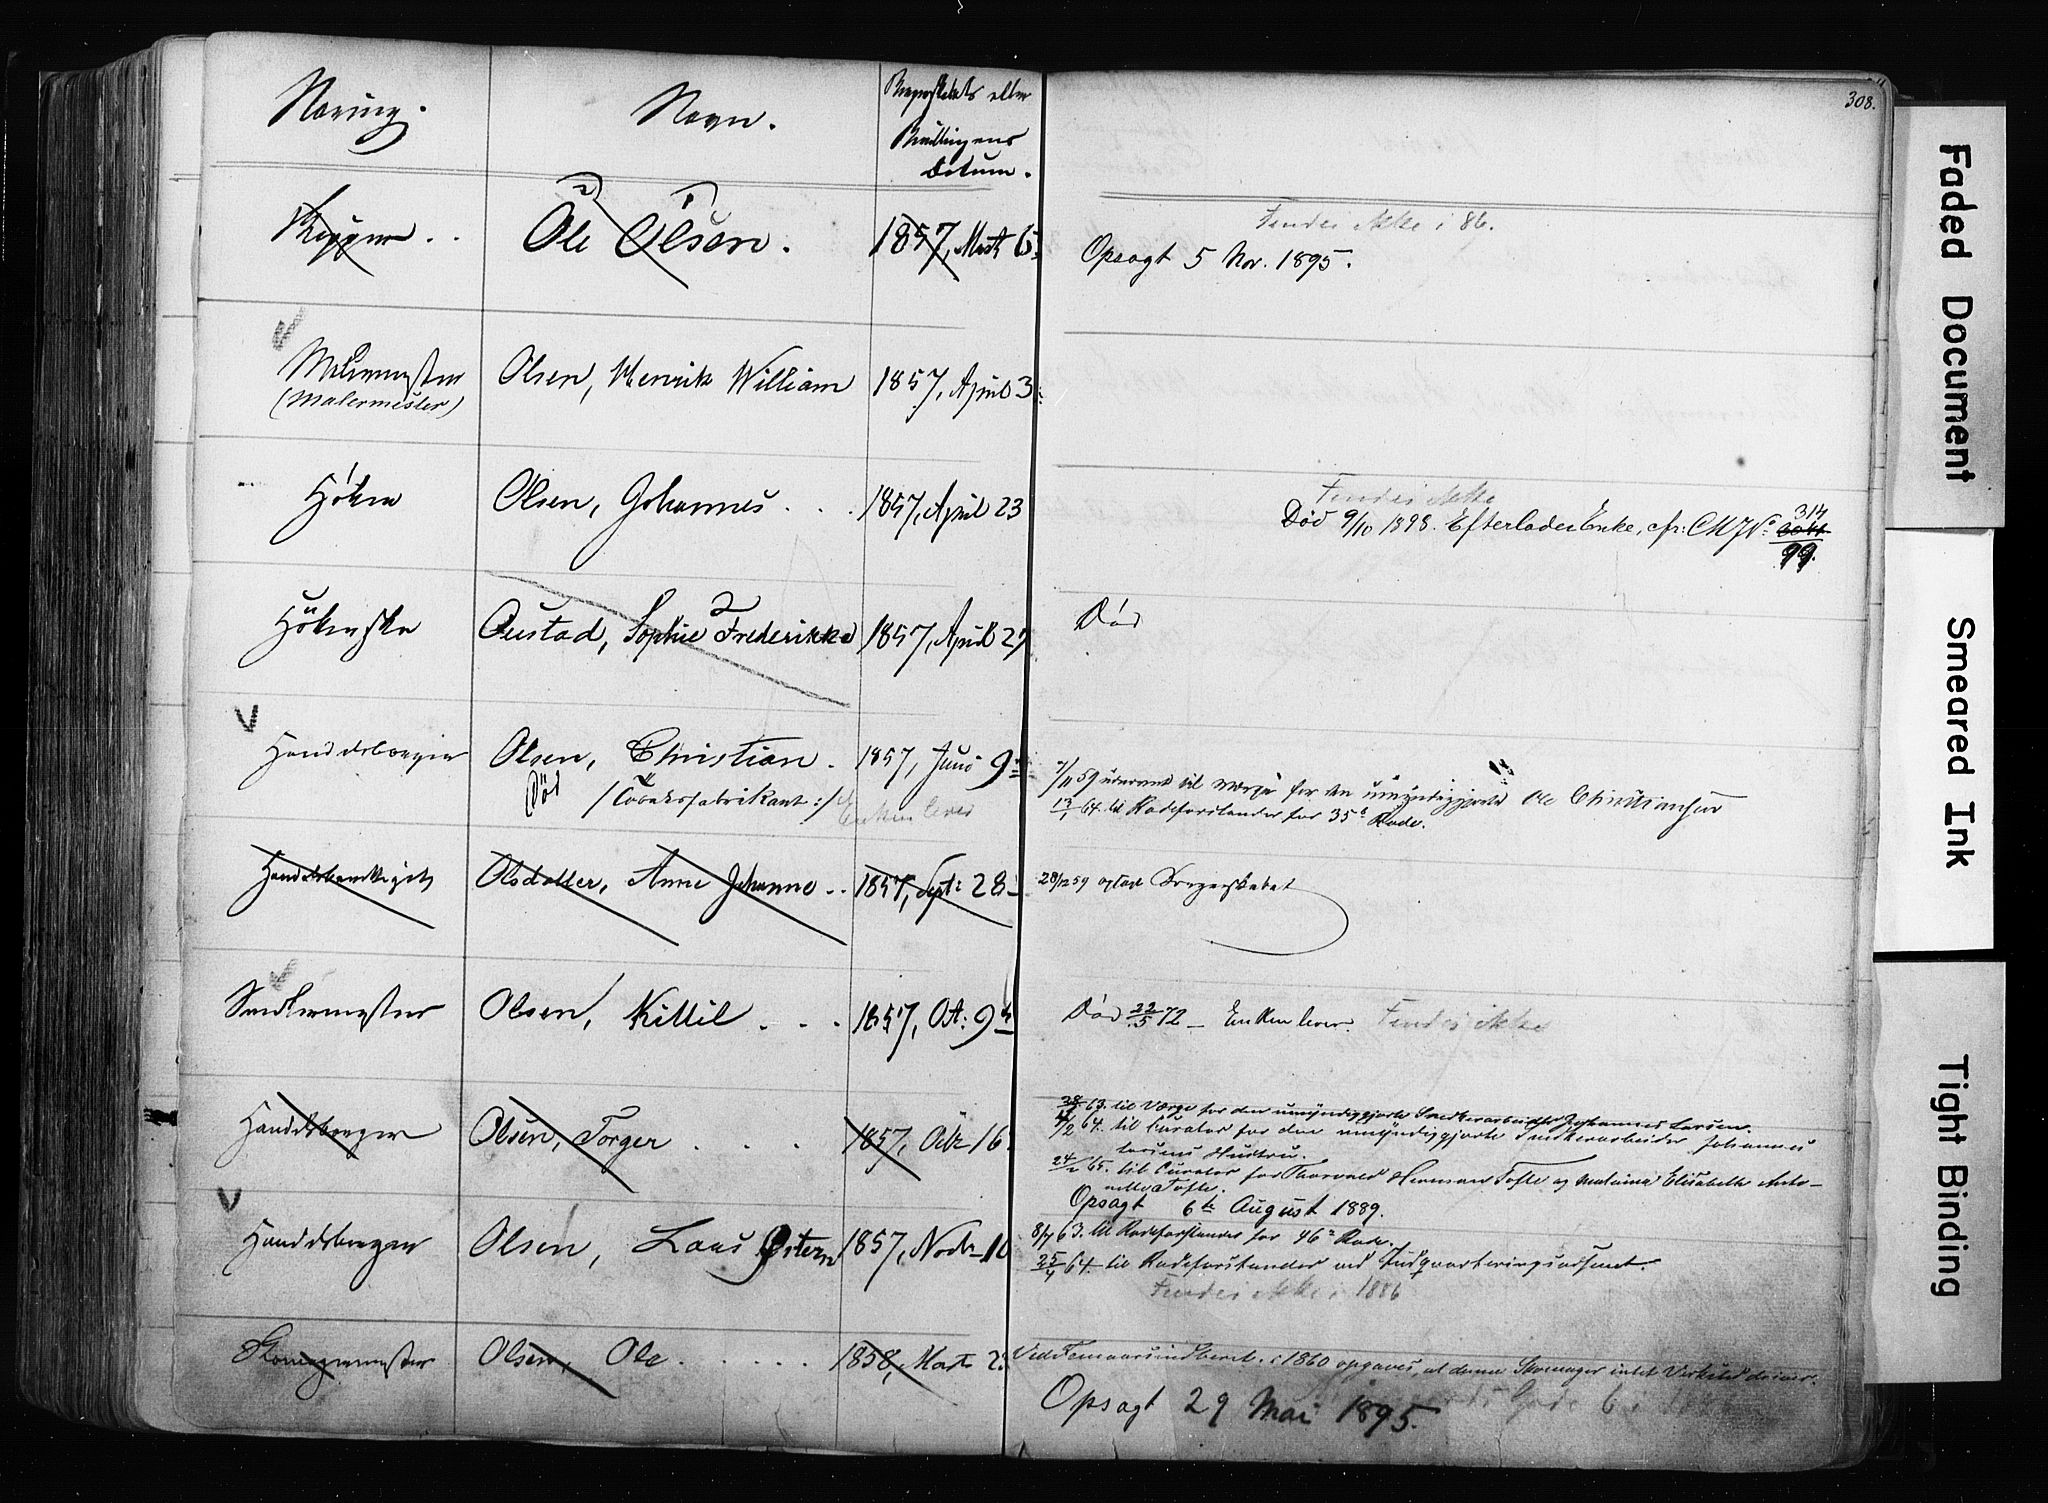 308.
Næring.
Navn.
Borgerskabets eller
Bevillingens
Datum.
Skipper
Ole Olsen.
1857, Marts
Findes ikke i 86.
Opsagt 5 Nov. 1895.
Malermester
(Malermester)
Olsen, Henrik William
1857, April 3
Höker
Olsen, Johannes
1857, April 23
Findes ikke
Død 9/10 1898. Efterlader Enke, cfr: CMJN: 314
99.
Hökerske
Oustad, Sophie Frederikke
1857, April 27
Død
Handelsborger
Olsen, Christian.
1857, Juni 9
Död
/ Tobaksfabrikant :/
Enken lever
7/11 59 udnævnt til Værge for den umyndiggjorte Ole Christiansen
13/1 64. til Rodeforstander for 35te Rode.
Olsdatter, Anne Johanne
1857, Sept: 28
28/12 59 opsagt Borgerskabet
Snedkermester
Olsen, Kittil
1857, Oct: 9
Død 22/5 72 – Enken lever. Findes ikke
Handelsborger
Olsen, Torger
1857, Octr 16
63. til Værge for den umyndiggjorte Snedkerarbeider Johannes Larsen.
/2 64. til Curator for den umyndiggjorte Snedkerarbeider Johannes
Larsens Hustru.
24/2 65. til Curator for Thorvald Herman Tofte og Mathina Elisabeth Anto-
nette Tofte.
Opsagt 6te August 1889.
Handelsborger
Olsen, Laus Ostern
1857, Novbr 10
8/7 63. til Rodeforstander for 46te Rode.
25/4 64. til Rodeforstander ved Indqvarteringsvæsenet.
Findes ikke i 1886
Skomagermester
Olsen, Ole
1858, Marts 2
Ved Femaarsindberet. i 1860 opgaves, at denne Skomager intet Værksted driver.
Opsagt 29 Mai 1895.
Gade 6
Faded Document
Smeared Ink
Tight Binding